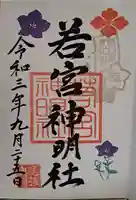 若宮神明社
令和三年九月二十五日